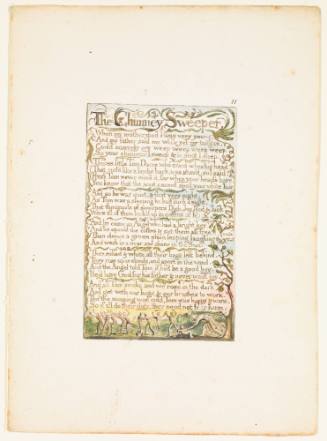 11
The Chimney Sweeper
When my mother died I was very young,
And my father sold me while yet my tongue,
Could scarcely cry weep weep weep weep.
So your chimneys I sweep & in soot I sleep.
Theres little Tom Dacre, who cried when his head
That curl'd like a lambs back, was shav'd, so I said.
Hush Tom never mind it, for when your head's bare,
You know that the soot cannot spoil your white hair
And so he was quiet, & that very night,
As Tom was a sleeping he had such a sight,
That thousands of sweepers Dick, Joe, Ned & Jack
Were all of them lock'd up in coffins of black
And by came an Angel who had a bright key
And he open'd the coffins & set them all free.
Then down a green plain leaping laughing they run
And wash in a river and shine in the Sun.
Then naked & white, all their bags left behind,
They rise upon clouds, and sport in the wind.
And the Angel told Tom if he'd be a good boy,
He'd have God for his father & never want joy.
And so Tom awoke and we rose in the dark
And got with our bags & our brushes to work.
Tho' the morning was cold, Tom was happy & warm,
So if all do their duty, they need not fear harm.